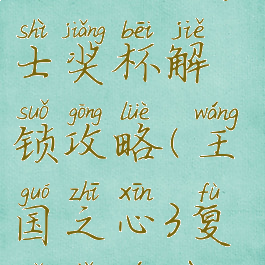 shì jiǎng bēi jiě
士奖杯解
suǒ gōng lüè wáng
锁攻略(王
guó zhī xīn fù
国之心3复